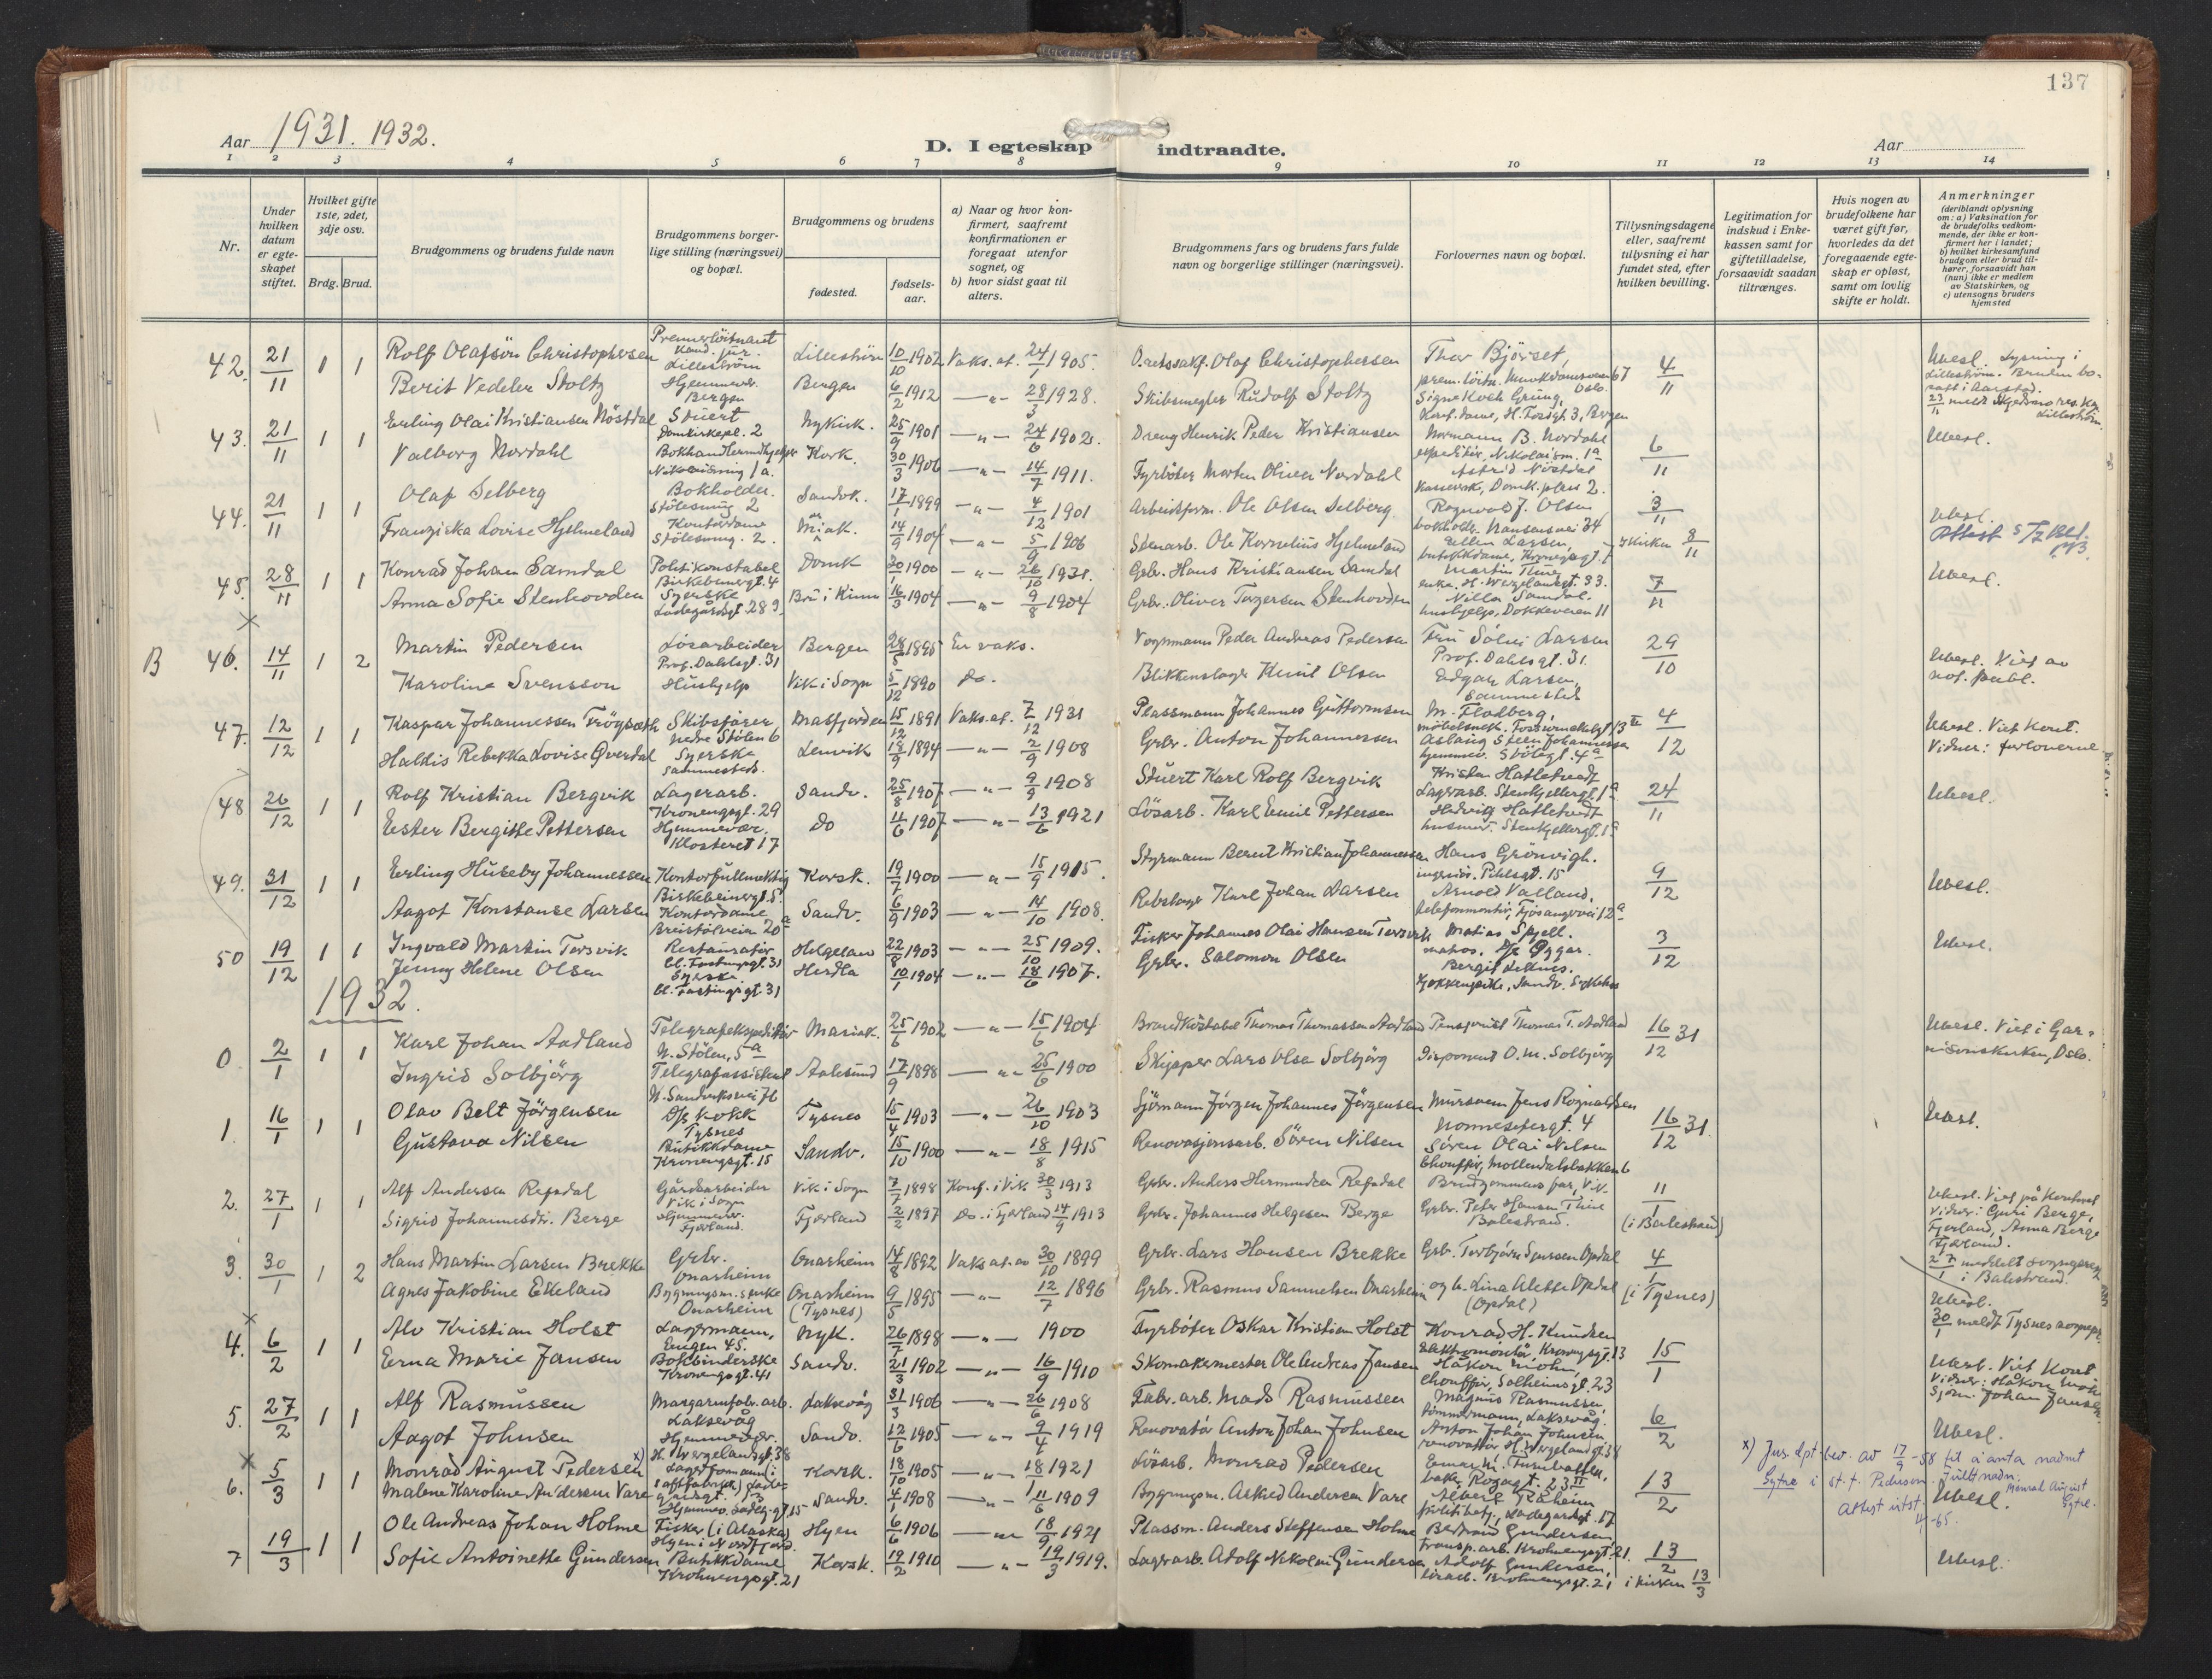 137
Aar 1931. 1932.
D. I egteskap indtraadte.
Aar
1 2 3 4 5 6 7 8 9 10 11 12 13 14
Nr.
Under hvilken datum er egteskapet stiftet.
Hvilket gifte 1ste, 2det, 3dje osv.
Brdg. Brud.
Brudgommens og brudens fulde navn
Brudgommens borgerlige stilling (næringsvei) og bopæl.
Brudgommens og brudens
fødested.
fødselsaar.
a) Naar og hvor konfirmert, saafremt konfirmationen er foregaat utenfor sognet, og
b) hvor sidst gaat til alters.
Brudgommens fars og brudens fars fulde navn og borgerlige stillinger (næringsvei).
Forlovernes navn og bopæl.
Tillysningsdagene eller, saafremt tillysning ei har fundet sted, efter hvilken bevilling.
Legitimation for indskud i Enkekassen samt for giftetilladelse, forsaavidt saadan tiltrænges.
Hvis nogen av brudefolkene har været gift før, hvorledes da det foregaaende egteskap er opløst, samt om lovlig skifte er holdt.
Anmerkninger
(deriblandt oplysning om: a) Vaksination for de brudefolks vedkommende, der ikke er konfirmert her i landet; b) hvilket kirkesamfund brudgom eller brud tilhører, forsaavidt han (hun) ikke er medlem av Statskirken, og c) utensogns bruders hjemsted
42. 21/11 1 1 Rolf Olafsön Christophersen Premierlöitnant Kand. jur. Lilleström Lilleström 10/10 1902 Vaks. at. 24/1 1905. O.retssakf. Olaf Christophersen Thor Björset, 4/11 Ubesl. Lysning i Lilleström.
Berit Vedeler Stoltz Hjemmev. Bergen Bergen 6/2 1912 — " — 28/3 1928. Skibsmegler Rudolf Stoltz Signe Koch Grung,
43. 21/11 1 1 Erling Olai Kristiansen Nöstdal Stuert Domkirkepl. 2 Nykirk. 25/9 1901 — " — 24/6 1902. Dreng Henrik Peder Kristiansen Normann B. Nordahl 6/11 Ubesl.
Valborg Nordahl Nikolaismug 1a. Kork. 30/3 1906 — " — 14/7 1911. Fyrböter Morten Oliver Nordahl Astrid Nöstdal
44. 21/11 1 1 Olaf Selberg Bokholder. Stölesmug 2 Sandvk. 17/1 1899 — " — 4/12 1901 Arbeidsform. Ole Olsen Selberg. Ragnvald J. Olsen 3/11 Ubesl.
Franziska Lovise Hjelmeland Kontordame Stölesmug. 2. Mariak. 14/9 1904 — " — 5/9 1906 Stenarb. Ole Kornelius Hjelmeland Ellen Larsen, i kirken 8/11
45. 28/11 1 1 Konrad Johan Samdal Politikonstabel Birkebeinergt. 4 Domk 20/1 1900 — " — 26/10 1931. Grbr. Hans Kristiansen Samdal 7/11 Ubesl.
Anna Sofie Stenhovden Syerske Ladegårdsgt. 28 Bru i Kinn 16/3 1904 — " — 9/8 1904 Grbr. Oliver Torgersen Stenhovden Nilla Samdal. hushjelp, Dokkeveien 11
B 46. 14/11 1 2 Martin Pedersen Lösarbeider Prof. Dahlsgt. 31 Bergen 28/5 1895 Er vaks. Vognmann Peder Andreas Pedersen Fru Solvei Larsen Prof. Dahlsgt. 31. 29/10 Ubesl. Viet av not. publ.
Karoline Svensson Hushjelp Vik i Sogn 5/12 1890 do. Blikkenslager Knut Olsen Edgar Larsen, sammested
47. 12/12 1 1 Kaspar Johannessen Frögseth Skibsförer nedre Stölen 6 Masfjorden 15/12 1891 Vaks. at. 7/12 1931 Plassmann Johannes Guttormsen M. Flodberg, 4/12 Ubesl. Viet Kont. Vidner: forloverne
Halkis Rebekka Lovise Överdal Syerske sammesteds. Lenvik 18/9 1894 — " — 2/9 1908 Grbr. Anton Johannessen Aslaug Steen Johannessen
48 26/12 1 1 Rolf Kristian Bergvik Lagerarb. Kronengsgt. 29 Sandv. 25/8 1907 — " — 9/9 1908 Stuert Karl Rolf Bergvik Kristen Hatletvedt Lagerarb. Stenkjellergt. 1a 24/11 Ubesl.
Ester Bergitte Pettersen Hjemmevær. Klosteret 17 do 11/6 1907 — " — 13/6 1921 Lösarb. Karl Emil Pettersen Hedvig Hatletvedt husmor. Stenkjellergt. 1a
49. 31/12 1 1 Erling Huseby Johannessen Kontorfullmektig Birkebeinergt. 5 Korsk. 19/7 1900 — " — 15/9 1915. Styrmann Bernt Kristian Johannessen Hans Grönvigh. ingeniör. Pihlsgt. 15 9/12 Ubesl.
Aagot Konstanse Larsen Kontordame Breistölveien 20a Sandv. 6/9 1903 — " — 14/10 1908. Rebslager Karl Johan Larsen Arnold Valland, telefonmontör, Fjösangervei 12a
50 19/12 1 1 Ingvald Martin Torsvik Restauratör Helgeland 22/8 1903 — " — 25/10 1909. Fisker Johannes Olai Hansen Torsvik Matias Spjell. matros. 3/12 Ubesl.
Jenny Helene Olsen Syerske Herdla 10/1 1904 — " — 18/6 1907. Grbr. Salomon Olsen Bergit Leknes. Kjökkenpike, Sandv. Sykehus
1932.
0. 2/1 1 1 Karl Johan Aadland Telegrafekspeditör N. Stölen, 5a Mariak. 25/6 1902 — " — 15/6 1904 Brandkonstabel Thomas Thomassen Aadland Pensjonist Thomas T. Aadland 16/12 31 Ubesl. Viet i Garnisonskirken, Oslo.
Ingrid Solbjörg Telegrafassistent N. Sandviksvei 76 Aalesund 17/9 1898 — " — 25/6 1900 Skipper Lars Olsen Solbjörg Disponent O. M. Solbjörg
1. 16/1 1 1 Olav Belt Jörgensen D/s kokk Tysnes Tysnes 15/4 1903 — " — 26/10 1903 Sjömann Jörgen Johannes Jörgensen Mursvenn Jens Rognaldsen Nonneseter gt. 4 16/12 31. Ubesl.
Gustava Nilsen Butikkdame Kronengsgt. 15 Sandv. 15/10 1900 — " — 18/8 1915 Renovasjonsarb. Sören Nilsen Sören Olai Nilsen Choufför, Möllendalsbakken 6
2. 27/1 1 1 Alf Andersen Refsdal Gårdsarbeider Vik i Sogn Vik i Sogn 7/7 1898 Konf. i Vik 30/3 1913 Grbr. Anders Hermundsen Refsdal Brudgommens far, Vik 11/1 (i Balestrand) Ubesl. Viet på Kontoret Vidner: Guri Berge, Fjærland, Anna Berge Fjærland.
Sigrid Johannesdtr. Berge Hjemmevær. Fjærland. Fjærland 2/2 1897 Do. i Fjærland 14/9 1913 Grbr. Johannes Helgesen Berge Grbr. Peter Hansen Thue Balestrand. 27/1 meddelt sogneprest i Balestrand.
3. 30/1 1 2 Hans Martin Larsen Brekke Grbr. Onarheim Onarheim 14/8 1892 Vaks at. av 30/10 1899 Grbr. Lars Hansen Brekke Grb. Torbjörn Sjursen Opdal 4/1 (i Tysnes) Ubesl.
Agnes Jakobine Ekeland Bygningsm. enke Onarheim Onarheim (Tysnes) 9/5 1895 — " — 12/7 1896 Grbr. Rasmus Samuelsen Onarheim og h. Lina Alette Opdal (Opdal) 30/1 meldt Tysnes sognepr.
4. 6/2 1 1 Alv Kristian Holst Lagermann, Engen 45. Nyk. 26/7 1898 — " — 1900 Fyrböter Oskar Kristian Holst Konrad H. Knudsen Elektromontör, Kronengsgt. 13 15/1
Erna Marie Jansen Bokbinderske Kronengsgt. 41 Sandv. 21/3 1902 — " — 16/9 1910 Skomakermester Ole Andreas Jansen Håkon Mohn choufför, Solheimsgt. 23
5. 27/2 1 1 Alf Rasmussen Margarinfabr. arb. Laksevåg Laksevåg 31/3 1906 — " — 26/6 1908 Fabr. arb. Mads Rasmussen Magnus Rasmussen, tömmermann, Laksevåg. 6/2 Ubesl.
Aagot Johnsen Hjemmevær. H. Wergelandsgt. 38 Sandv. 12/6 1905 — " — 9/4 1919 Renovatör Anton Johan Johnsen Anton Johan Johnsen, renovatör H. Wergelandsgt. 38
6. 5/3 1 1 Monrad August Pedersen x) Korsk. 18/10 1905 — " — 18/1 1921 Lösarb. Monrad Pedersen 13/2 Ubesl.
Malene Karoline Andersen Vare Sandv. 4/1 1908 — " — 11/6 1909 Bygningsm. Askild Andersen Vare Albert Råheim politibetj., Ladegårdsgt. 17
x) Jus. dpt. bev. av 17/9 -58 til å anta navnet Sytre i st. f. Pedersen. Fullt navn: Monrad August Sytre. Attest utst.
7 19/3 1 1 Ole Andreas Johan Holme Fisker (i Alaska) Hyen i Nordfjord. Hyen 6/6 1906 — " — 18/9 1921 Plassm. Anders Steffensen Holme Bertrand Gundersen Transp. arb. Krohnengsgt. 21. 13/2 Ubesl.
Sofie Antoinette Gundersen Butikkdame Krohnengsgt. 21 Korsk. 19/2 1910 — " — 19/3 1919. Lagerarb. Adolf Nikolai Gundersen Adolf Gundersen, lösarb. Krohnengsgt. 21 i kirken 13/3